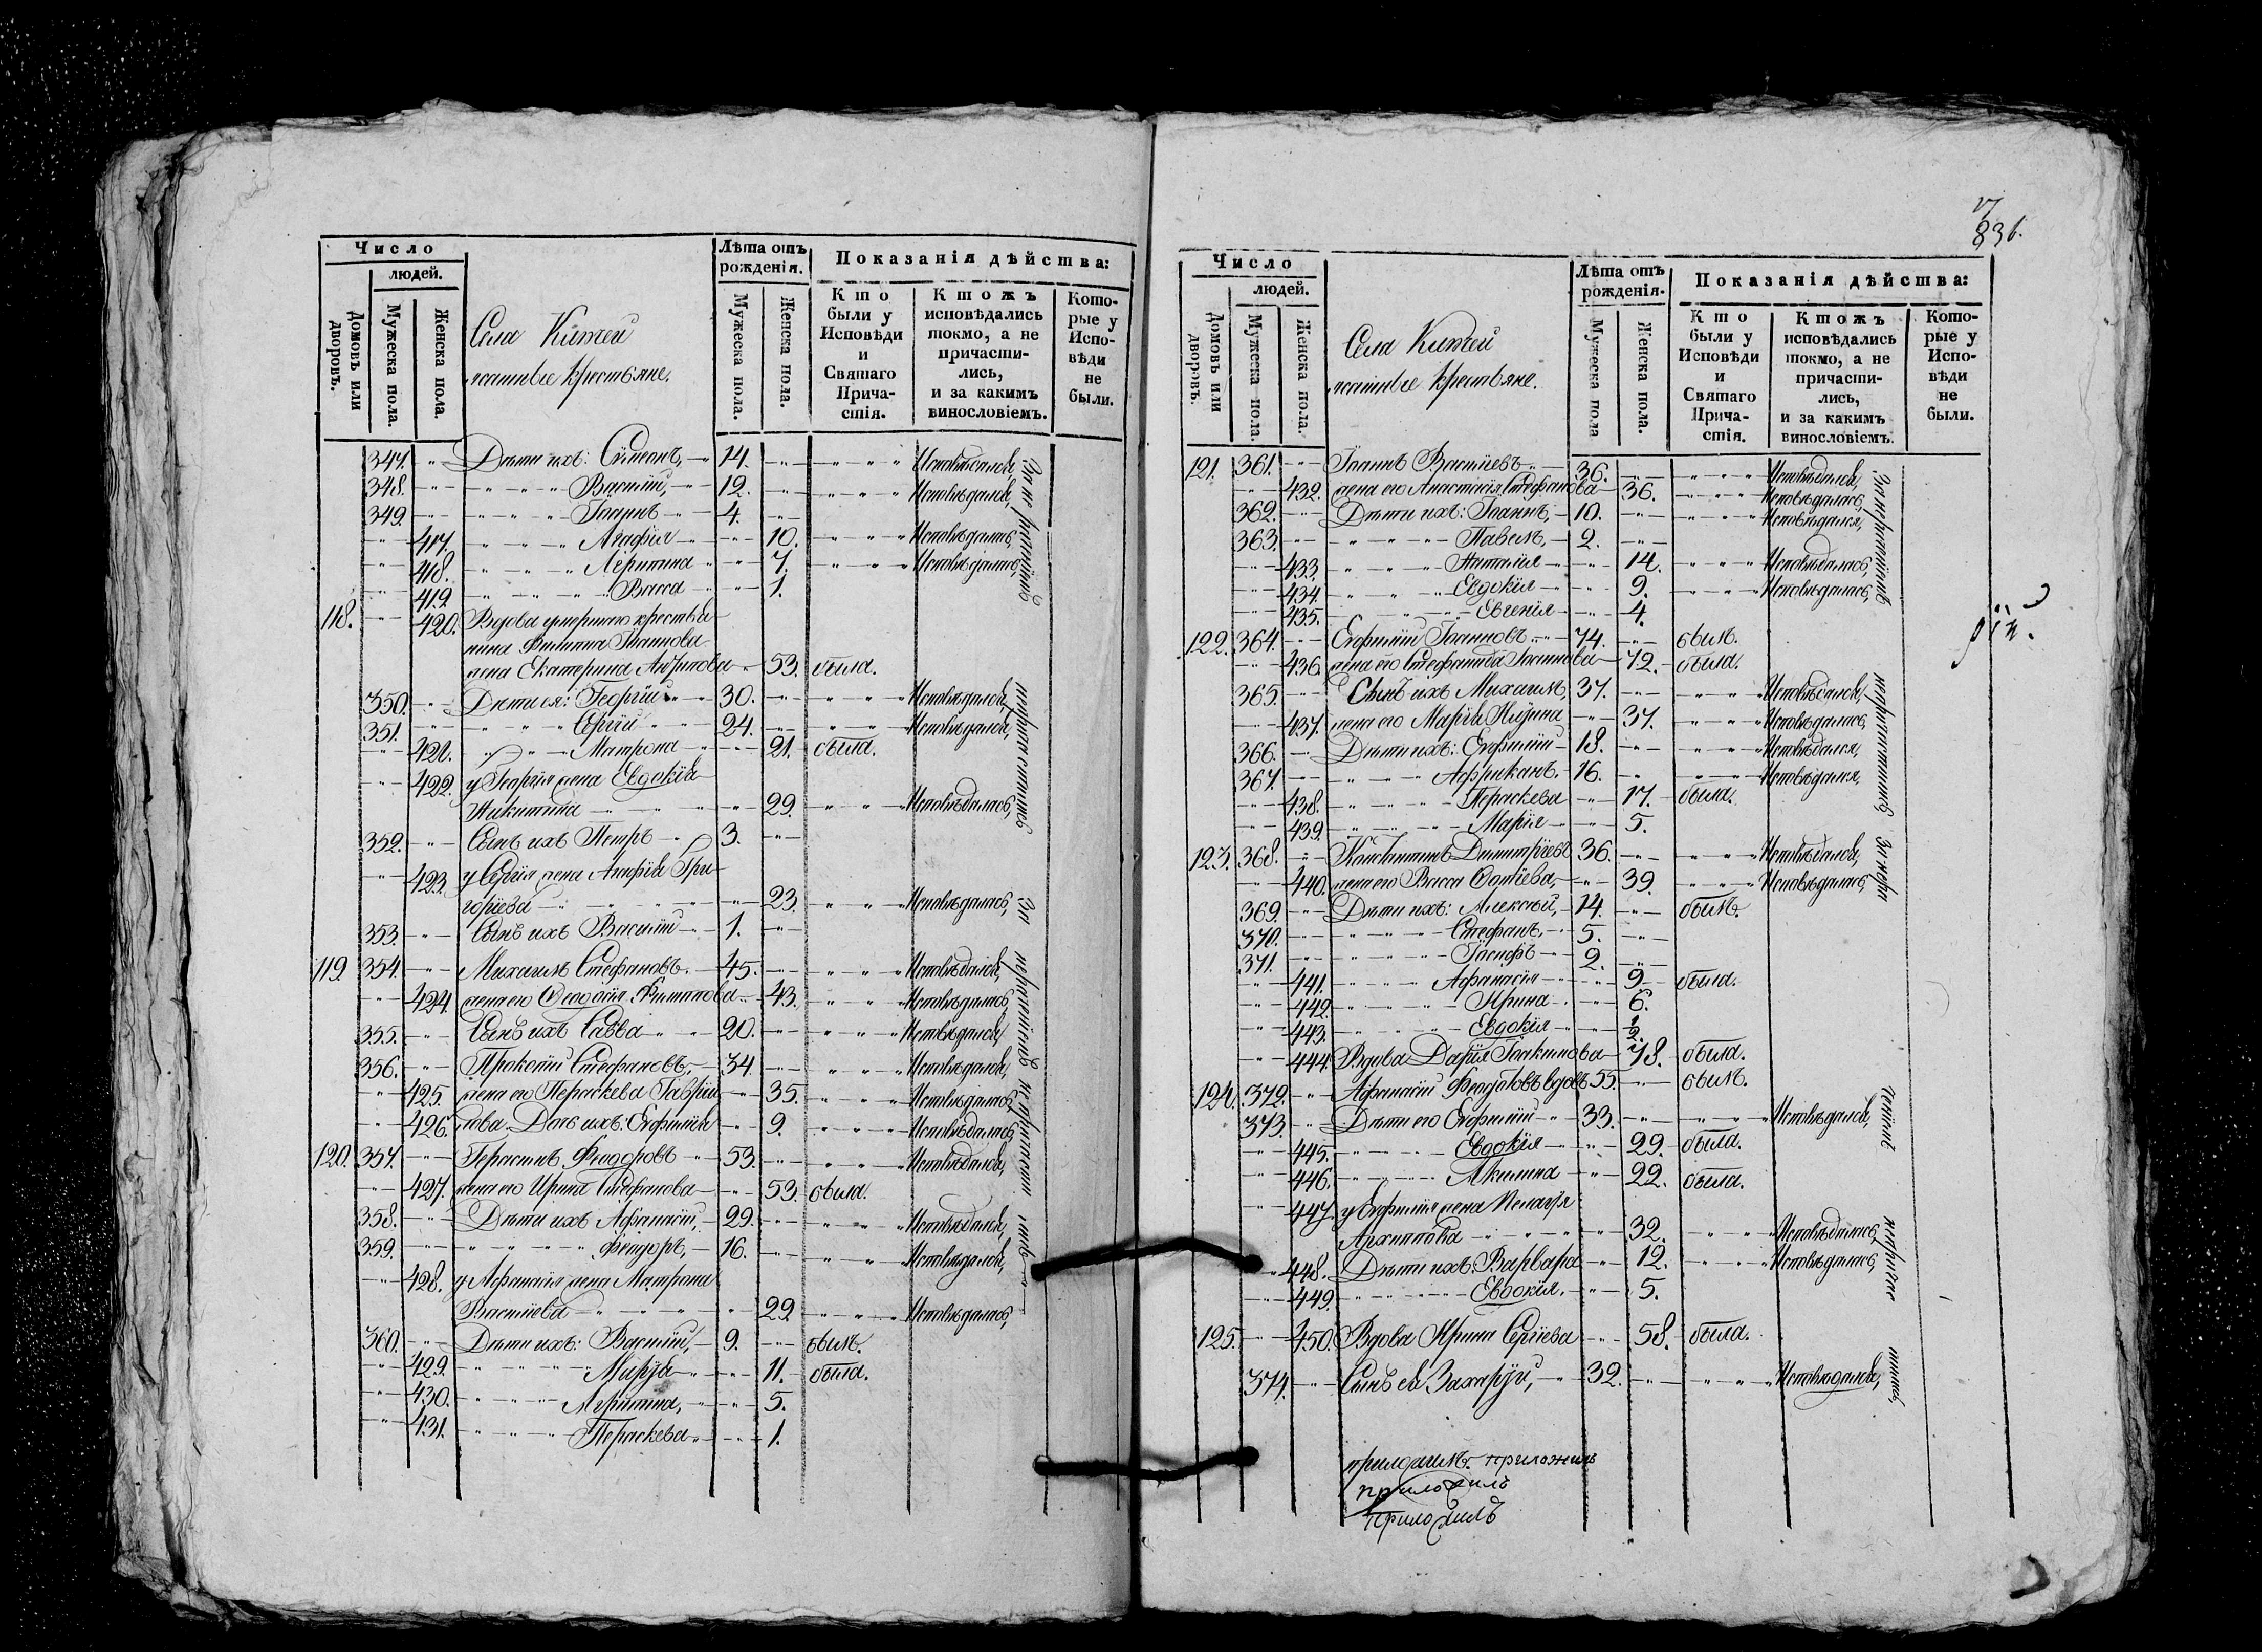 Число
людей.
Домовъ или дворовъ.
Мужеска пола.
Женска пола.
Лѣта отъ рожденія.
Мужеска пола.
Женска пола.
Показанія дѣйства:
Кто были у Исповѣди и Святаго Прича-стія.
Ктожъ исповѣдались токмо, а не причасти-лись, и за какимъ винословіемъ.
Кото-рые у Испо-вѣди не были.
Села
крестьяне.
347. Дѣти ихъ: Сѵмеонъ, 14. Исповѣдался,
348. Василій, 12. Исповѣдался,
349. Іоаннъ 4.
417. Агафія 10. Исповѣдалась,
418. 7. Исповѣдалась,
419. Васса 1.
118. 420. Вдова умершаго крестья-
нина Филиппа Іоаннова
жена Екатерина 53. была.
350. Дѣти ея: Георгій 30. Исповѣдался,
351. Сергій 24. Исповѣдался,
421. Матрона 21. была.
422. у Георгія жена Евдокія
Никитина 29. Исповѣдалась,
352. Сынъ ихъ Петръ 3.
423. у Сергія жена Агафія Гри-
горіева 23. Исповѣдалась,
353. Сынъ ихъ Василій 1.
119 354. Михаилъ Стефановъ. 45. Исповѣдался,
424. жена его Ѳеодосія Филиппова 43. Исповѣдалась,
355. Сынъ ихъ Савва 20. Исповѣдался,
356. Прокопій Стефановъ, 34. Исповѣдался,
425. жена его Параскева Гаврии- 35. Исповѣдалась,
426. лова. Дочь ихъ: Евфимія 9. Исповѣдалась,
120. 357. Герасимъ Ѳеодоровъ 53. Исповѣдался,
427. жена его Ирина Стефанова 53. была.
358. Дѣти ихъ Афанасій, 29. Исповѣдался,
359. Ѳеодоръ, 16. Исповѣдался,
428. у Афанасія жена Матрона
Васильева 29. Исповѣдалась,
360. Дѣти ихъ: Василій, 9. былъ.
429. Марѳа 11. была.
430. 5.
431. Параскева 1.
836.
Число
людей.
Домовъ или дворовъ.
Мужеска пола.
Женска пола.
Лѣта отъ рожденія.
Мужеска пола
Женска пола.
Показанія дѣйства:
Кто были у Исповѣди и Святаго Прича-стія.
Ктожъ исповѣдались токмо, а не причасти-лись, и за какимъ винословіемъ.
Кото-рые у Испо-вѣди не были.
Села
крестьяне.
121. 361. Іоаннъ Васильевъ 36. Исповѣдался,
432. жена его Анастасія Стефанова 36. Исповѣдалась,
362. Дѣти ихъ: Іоаннъ, 10. Исповѣдался,
363. Павелъ, 2.
433. Наталія 14. Исповѣдалась,
434. Евдокія 9. Исповѣдалась,
435. Евгенія 4.
122. 364. Евфимій Іоанновъ 74. былъ.
436. жена его Стефанида Іоаннова 72. была.
365. Сынъ ихъ Михаилъ, 37. Исповѣдался,
437. жена его Марѳа 37. Исповѣдалась,
366. Дѣти ихъ: Евфимій 18. Исповѣдался,
367. Африканъ. 16. Исповѣдался,
438. Параскева 17. была.
439. Марія 5.
123. 368. Константинъ Димитріевъ 36. Исповѣдался,
440. жена его Васса 39. Исповѣдалась,
369. Дѣти ихъ: Алексѣй, 14. былъ.
370. Стефанъ, 5.
371. Іосифъ 2.
441. Афанасія 9. была.
442. Ирина 6.
443. Евдокія 1/2.
444. Вдова Дарія Іоакимова 78. была.
124. 372. Афанасій Ѳеодотовъ вдовъ 55. былъ.
373. Дѣти его Евфимій 33. Исповѣдался,
445. Евдокія 29. была.
446. Акилина 22. была.
447. у Евфимія жена Пелагія
Архипова 32. Исповѣдалась,
448. Дѣти ихъ: Варвара 12. Исповѣдалась,
449. Евдокія. 5.
125. 450. Вдова Ирина Сергіева 58. была.
374. Сынъ ея Захарій, 32. Исповѣдался,
приложилъ. приложилъ
приложилъ
приложилъ